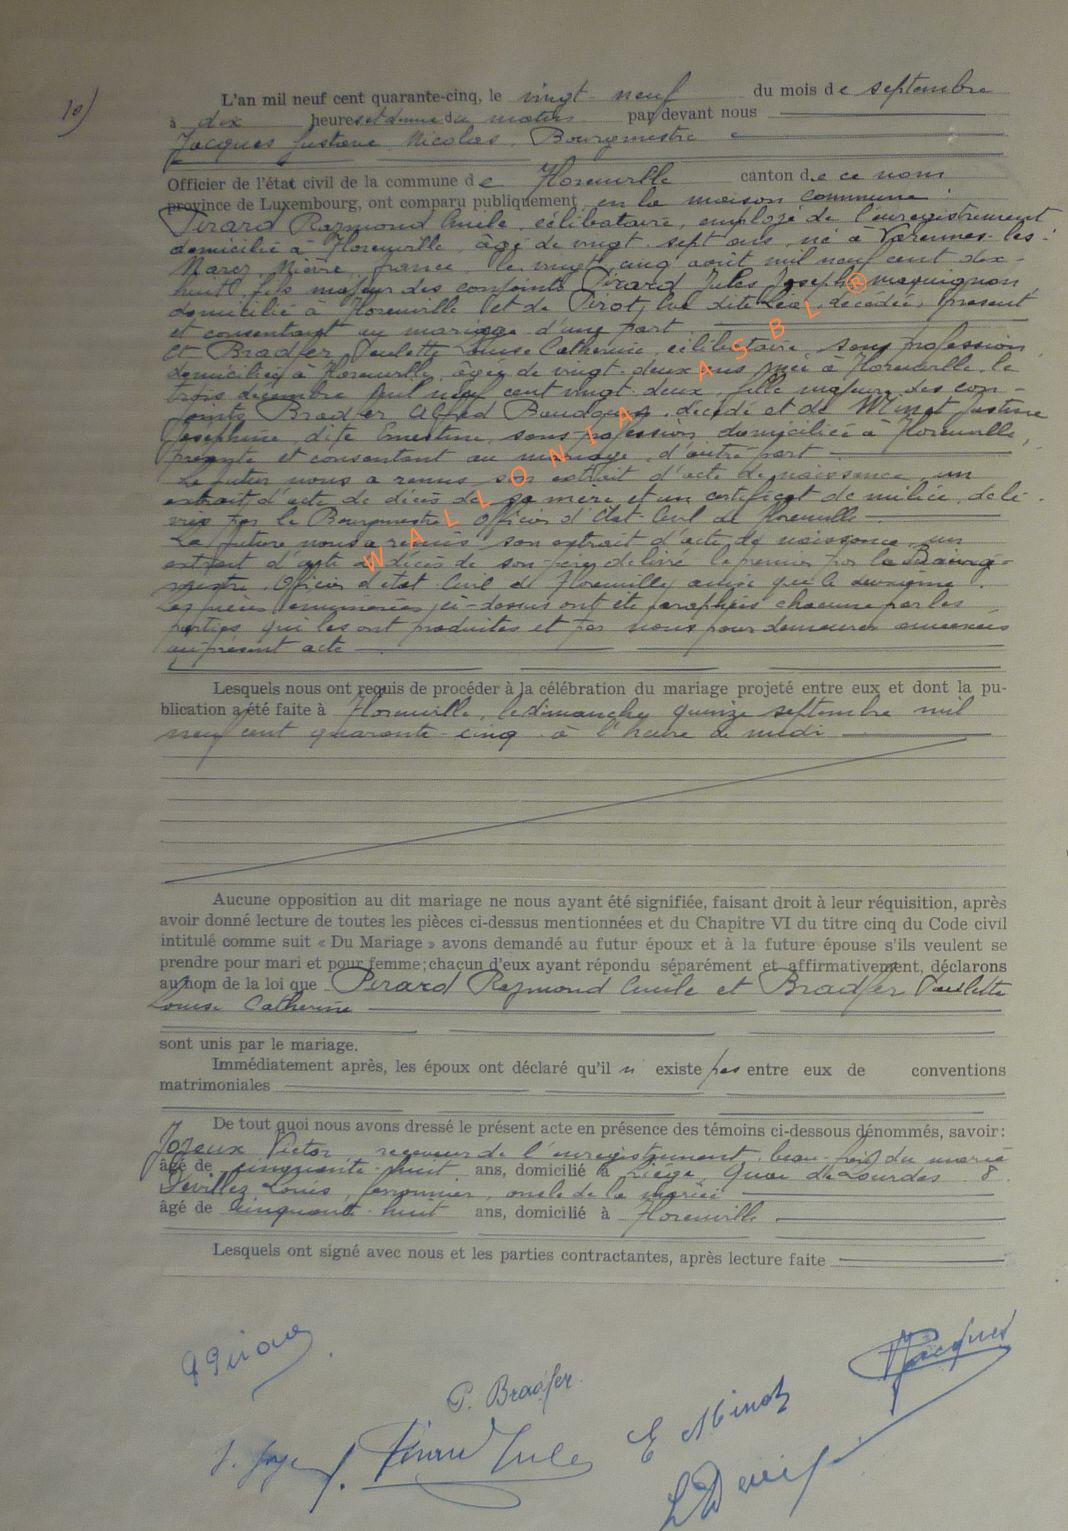 10)
L'an mil neuf cent quarante-cinq, le vingt-neuf du mois de septembre
à dix heures et demie du matin par devant nous
Jacques Gustave Nicolas, Bourgmestre
Officier de l'état civil de la commune de Florenville canton de ce nom
province de Luxembourg, ont comparu publiquement, en la maison commune :
Pirard Raymond Emile, célibataire, employé de l'enregistrement
domicilié à Florenville, âgé de vingt-sept ans, né à Varennes-les-
Narcy, Nièvre, france, le vingt cinq août mil neuf cent dix-
huit, fils majeur des conjoints Pirard Jules Joseph, maquignon,
domicilié à Florenville et de Pirot, dite Léa, décédée, présent
et consentant au mariage d'une part
Et Bradfer Paulette Louise Catherine, célibataire, sans profession,
domiciliée à Florenville, âgée de vingt-deux ans, née à Florenville, le
trois décembre mil neuf cent vingt-deux, fille majeure des con-
joints Bradfer Alfred, décédé et de Minet Justine
Joséphine, dite Ernestine, sans profession, domiciliée à Florenville,
présente et consentant au mariage, d'autre part
Le futur nous a remis son extrait d'acte de naissance, un
extrait d'acte de décès de sa mère et un certificat de milice, déli-
vrés par le Bourgmestre Officier d'Etat-Civil de Florenville
La future nous a remis son extrait d'acte de naissance, un
extrait d'acte de décès de son père, délivré le premier par le Bourg-
mestre, Officier d'état Civil de Florenville, ainsi que le deuxième.
Les pièces énumérées ci-dessus ont été paraphées chacune par les
parties qui les ont produites et par nous pour demeurer annexées
au présent acte
WALLONIA ASBL ®
Lesquels nous ont requis de procéder à la célébration du mariage projeté entre eux et dont la pu-
blication a été faite à Florenville, le dimanche quinze septembre mil
neuf cent quarante-cinq à l'heure de midi
Aucune opposition au dit mariage ne nous ayant été signifiée, faisant droit à leur réquisition, après
avoir donné lecture de toutes les pièces ci-dessus mentionnées et du Chapitre VI du titre cinq du Code civil
intitulé comme suit « Du Mariage » avons demandé au futur époux et à la future épouse s'ils veulent se
prendre pour mari et pour femme ; chacun d'eux ayant répondu séparément et affirmativement, déclarons
au nom de la loi que Pirard Raymond Emile et Bradfer Paulette
Louise Catherine
sont unis par le mariage.
Immédiatement après, les époux ont déclaré qu'il n' existe pas entre eux de conventions
matrimoniales
De tout quoi nous avons dressé le présent acte en présence des témoins ci-dessous dénommés, savoir :
Joyeux Victor, receveur de l'enregistrement, beau-frère du marié
âgé de cinquante-huit ans, domicilié à Liége, Quai de Lourdes 8
Devillez Louis, ferronnier, oncle de la mariée
âgé de cinquante-huit ans, domicilié à Florenville
Lesquels ont signé avec nous et les parties contractantes, après lecture faite
Jacques
P. Bradfer
Pirard Jules
E Minet